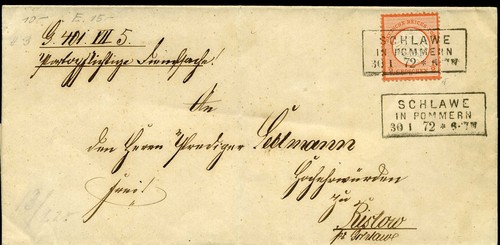 10.-
E. 15.-
G. 401 VII 5.
Portopflichtige Dienstsache!
SCHLAWE
IN POMMERN
30 1 72 * 6-7 N
SCHLAWE
IN POMMERN
30 1 72 * 6-7 N
An
den Herrn Prediger
Hochehrwürden
frei!
zu
Ristow